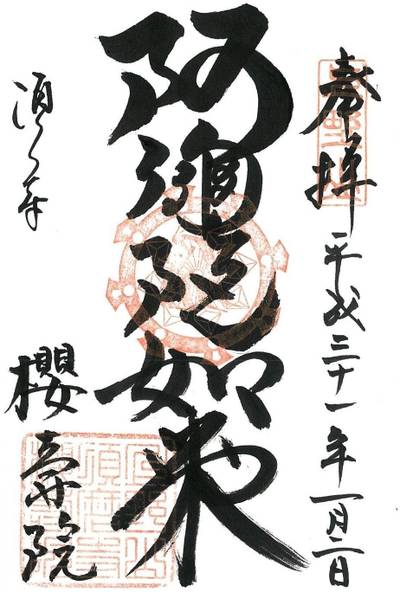 奉拝 平成三十一年一月二日
阿彌陀如来
須磨寺
櫻壽院